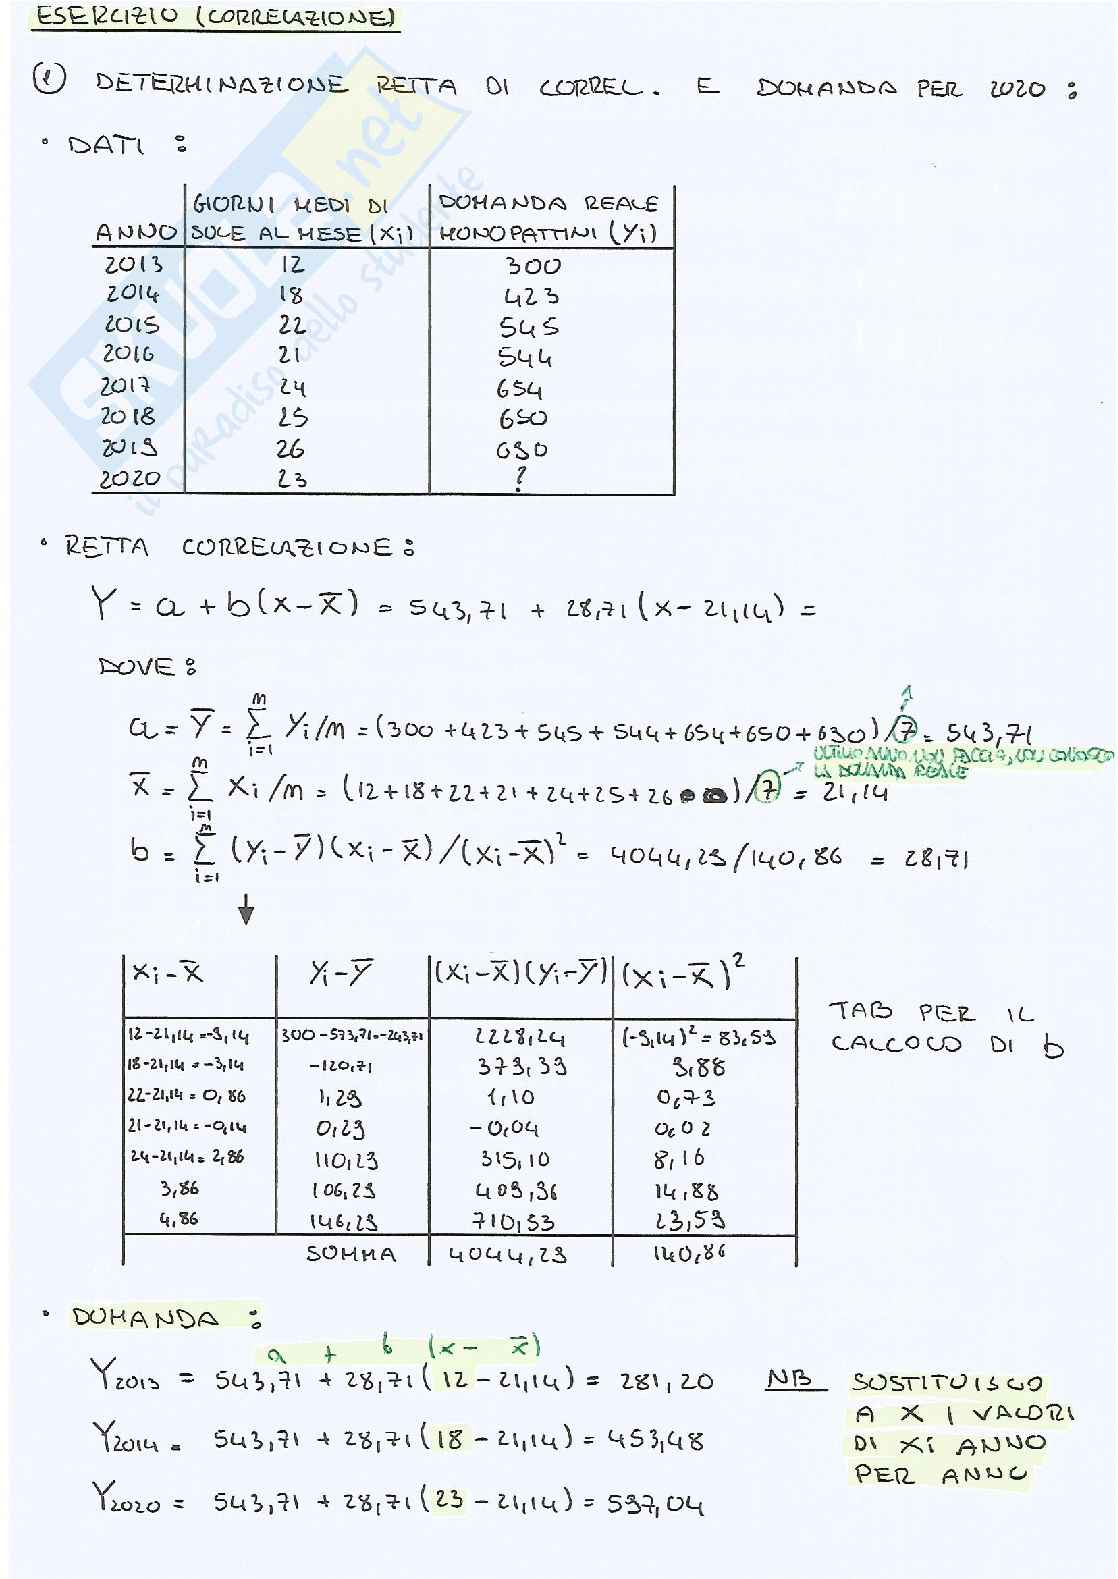 ESERCIZIO (CORRELAZIONE)
① DETERMINAZIONE RETTA DI CORREL. E DOMANDA PER 2020 :
• DATI :
ANNO GIORNI MEDI DI SOLE AL MESE (Xi) DOMANDA REALE MONOPATTINI (Yi)
2013 12 300
2014 18 423
2015 22 545
2016 21 544
2017 24 654
2018 25 650
2019 26 690
2020 23 ?
• RETTA CORRELAZIONE :
Y = a + b(x-x̄) = 543,71 + 28,71(x-21,14) =
DOVE :
a = Ȳ = Σ i=1 m Yi/m = (300+423+545+544+654+650+690)/7 = 543,71
1
ULTIMO ANNO NON FACCIO, NON CONOSCO
LA DOMANDA REALE
x̄ = Σ i=1 m Xi/m = (12+18+22+21+24+25+26)/7 = 21,14
b = Σ i=1 m (Yi-Ȳ)(Xi-x̄)/(Xi-x̄)² = 4044,29/140,86 = 28,71
Xi-x̄ Yi-Ȳ (Xi-x̄)(Yi-Ȳ) (Xi-x̄)²
12-21,14=-9,14 300-573,71=-243,71 2228,24 (-9,14)²=83,59
18-21,14=-3,14 -120,71 379,39 9,88
22-21,14=0,86 1,29 1,10 0,73
21-21,14=-0,14 0,29 -0,04 0,02
24-21,14=2,86 110,29 315,10 8,16
3,86 106,29 409,96 14,88
4,86 146,29 710,59 23,59
SOMMA 4044,29 140,86
TAB PER IL
CALCOLO DI b
• DOMANDA :
a + b (x - x̄)
Y2013 = 543,71 + 28,71(12-21,14) = 281,20
Y2014 = 543,71 + 28,71(18-21,14) = 453,48
Y2020 = 543,71 + 28,71(23-21,14) = 597,04
NB SOSTITUISCO
A X I VALORI
DI Xi ANNO
PER ANNO
SKUOLA.net
il paRadiso dello studente